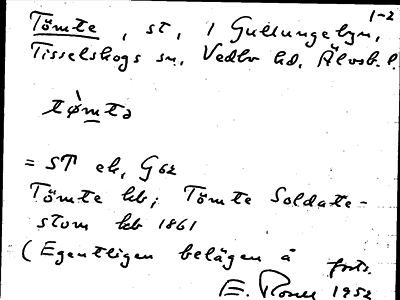 1-2
Tömte, st, i Gullungebyn,
Tisselskogs sn, Vedbo hd, Älvsb. l.
tø̀mtə
= ST ek, G 62
Tömte kb; Tömte Soldate-
stom kb 1861
(Egentligen belägen å forts.
E. Rosell 1952